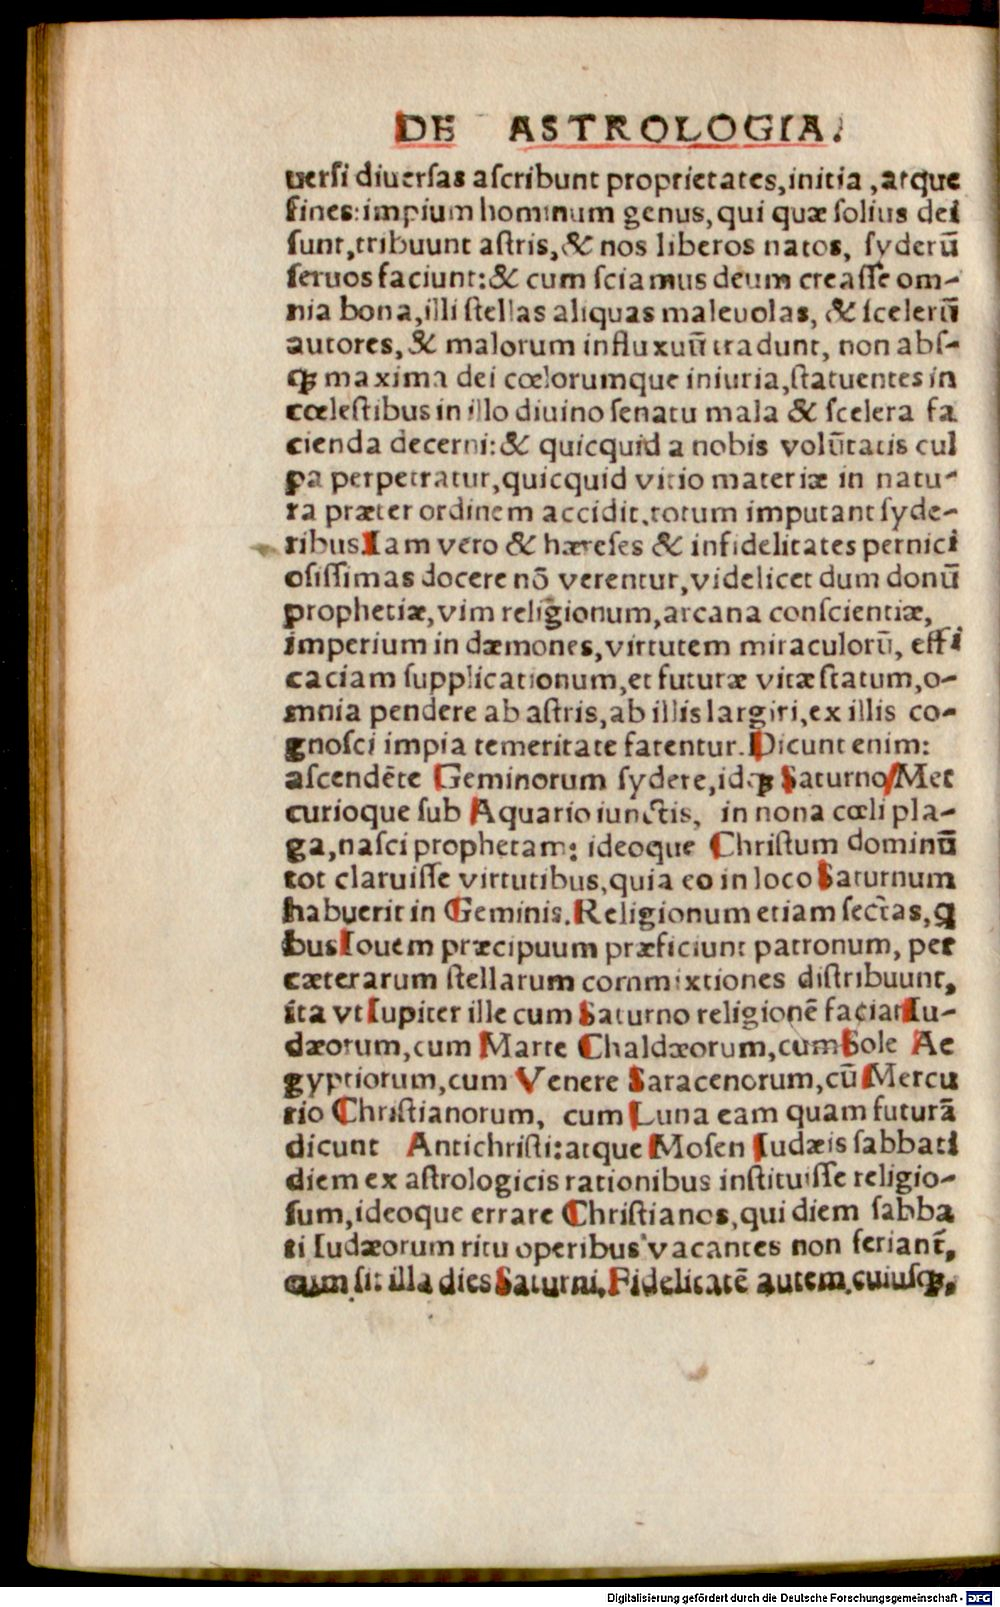 DE ASTROLOGIA.
uersi diuersas ascribunt proprietates, initia, atque
fines: impium hominum genus, qui quæ solius dei
sunt, tribuunt astris, & nos liberos natos, syderū
seruos faciunt: & cum sciamus deum creasse om-
nia bona, illi stellas aliquas maleuolas, & scelerū
autores, & malorum influxuū tradunt, non abs-
qȝ maxima dei cœlorumque iniuria, statuentes in
cœlestibus in illo diuino senatu mala & scelera fa
cienda decerni: & quicquid a nobis volūtatis cul
pa perpetratur, quicquid vitio materiæ in natu-
ra præter ordinem accidit, totum imputant syde-
ribus. Iam vero & hæreses & infidelitates pernici
osissimas docere nō verentur, videlicet dum donū
prophetiæ, vim religionum, arcana conscientiæ,
imperium in dæmones, virtutem miraculorū, effi
caciam supplicationum, et futuræ vitæ statum, o-
mnia pendere ab astris, ab illis largiri, ex illis co-
gnosci impia temeritate fatentur. Dicunt enim:
ascendēte Geminorum sydere, idqȝ Saturno, Mer
curioque sub Aquario iunctis, in nona cœli pla-
ga, nasci prophetam: ideoque Christum dominū
tot claruisse virtutibus, quia eo in loco Saturnum
habuerit in Geminis. Religionum etiam sectas, q
bus Iouem præcipuum præficiunt patronum, per
cæterarum stellarum commixtiones distribuunt,
ita vt Iupiter ille cum Saturno religionē faciat Iu-
dæorum, cum Marte Chaldæorum, cum Sole Ae
gyptiorum, cum Venere Saracenorum, cū Mercu
rio Christianorum, cum Luna eam quam futurā
dicunt Antichristi: atque Mosen Iudæis sabbati
diem ex astrologicis rationibus instituisse religio-
sum, ideoque errare Christianos, qui diem sabba
ti Iudæorum ritu operibus vacantes non feriant̄,
cum sit illa dies Saturni. Fidelitatē autem cuiusqȝ,
Digitalisierung gefördert durch die Deutsche Forschungsgemeinschaft - DFG